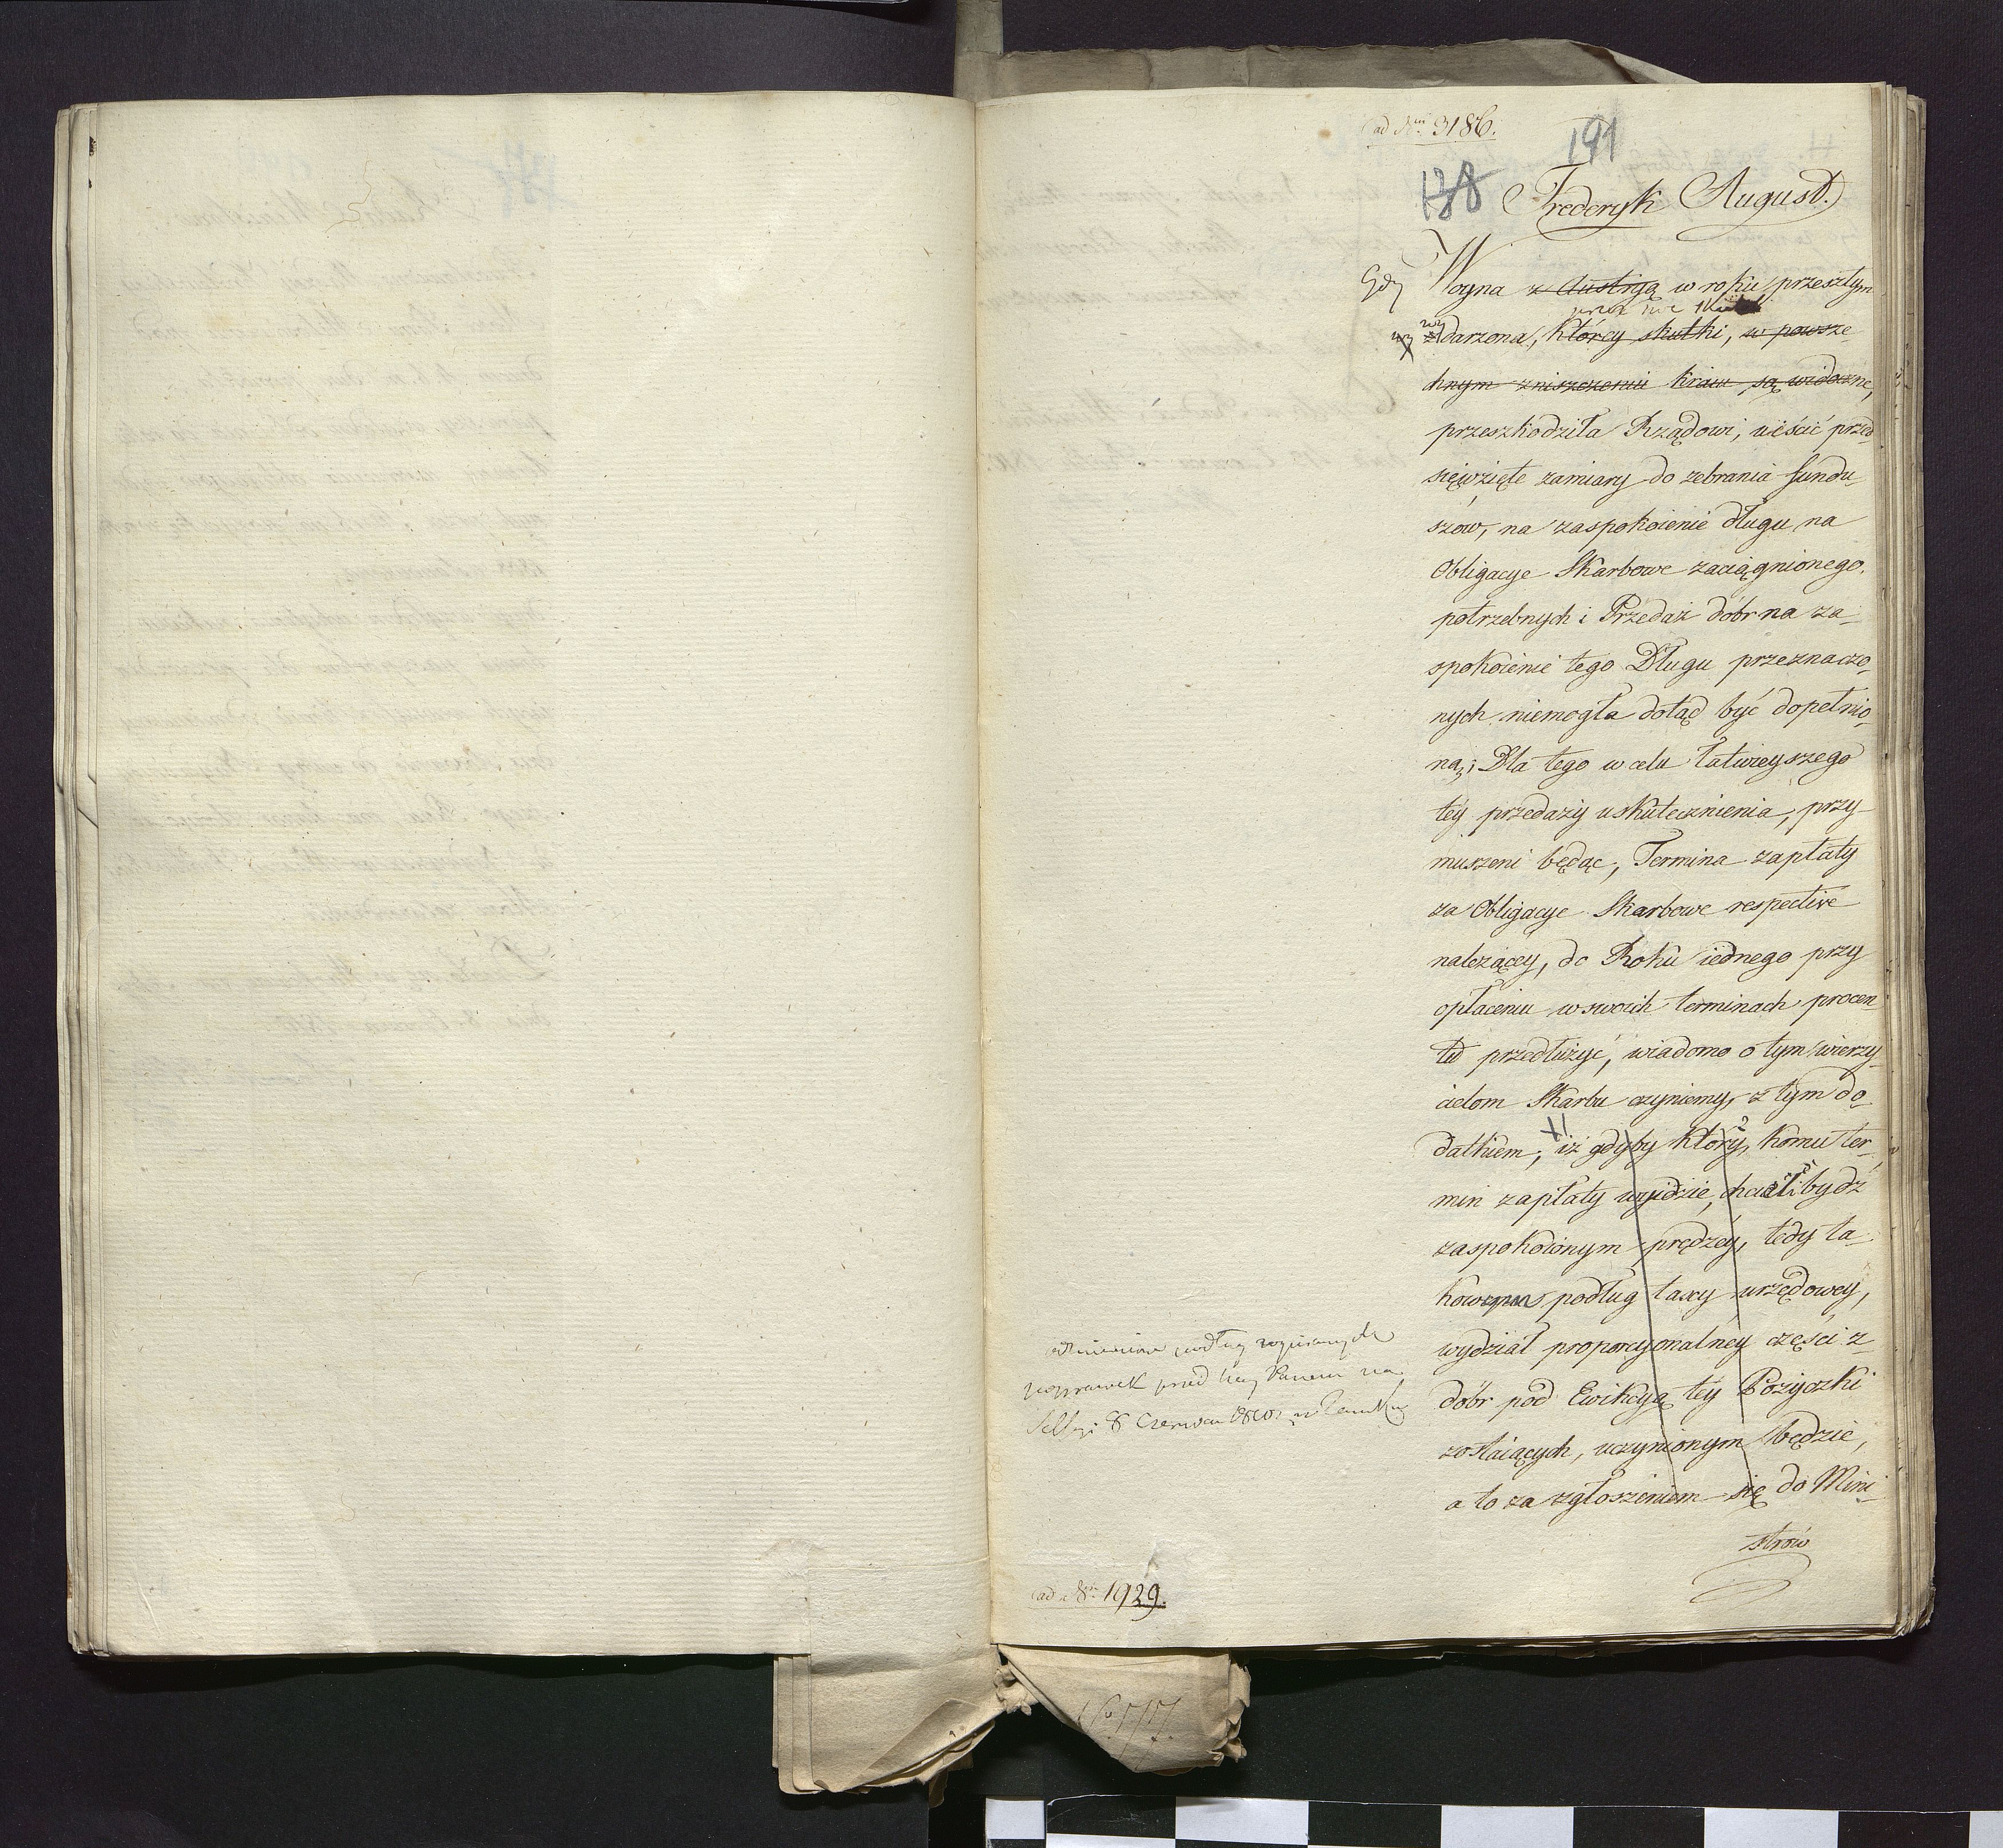 ad Nrm 3186.
191
138
Fryderyk August.
Gdy Woyna z Austryą w roku przeszłym
wydarzona, którey skutki, w powsze-
chnym zniszczeniu kraiu są widoczne,
przeszkodziła Rządowi, uiścić przed-
sięwzięte zamiary do zebrania fundu-
szów, na zaspokoienie długu na
Obligacye Skarbowe zaciągnionego,
potrzebnych i Przedaż dóbr na za-
spokoienie tego Długu przeznaczo-
nych niemogła dotąd być dopełnio-
ną; Dla tego w celu łatwieyszego
tey przedaży uskutecznienia, przy-
muszeni będąc, Termina zapłaty
za Obligacye Skarbowe respective
należącey, do Roku iednego przy
opłaceniu w swoich terminach procen-
tu przedłużyć, wiadomo o tym wierzy-
cielom Skarbu czyniemy, z tym do-
datkiem, iż gdyby który, komu ter-
min zapłaty wyidzie, chciał bydź
zaspokoionym prędzey, tedy ta-
podług taxy urzędowey,
wydział proporcyonalney części z
dóbr pod Ewikcyą tey Pożyczki
zostaiących, uczynionym będzie,
a to za zgłoszeniem się do Mini-
strów
odmienione podług wypisanych
poprawek przed Nay. Panem na
Sessyi 8 Czerwca 1810 w Zamku
ad Nr 1929.